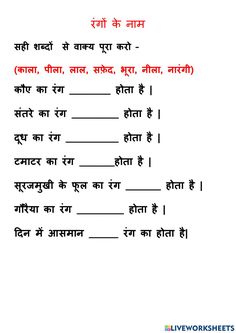 रंगों के नाम
सही शब्दों से वाक्य पूरा करो -
(काला, पीला, लाल, सफ़ेद, भूरा, नीला, नारंगी)
कौए का रंग _______ होता है |
संतरे का रंग _______ होता है |
दूध का रंग _______ होता है |
टमाटर का रंग ______होता है |
सूरजमुखी के फूल का रंग ______ होता है |
गौरैया का रंग ______ होता है |
दिन में आसमान ______ रंग का होता है|
LIVEWORKSHEETS